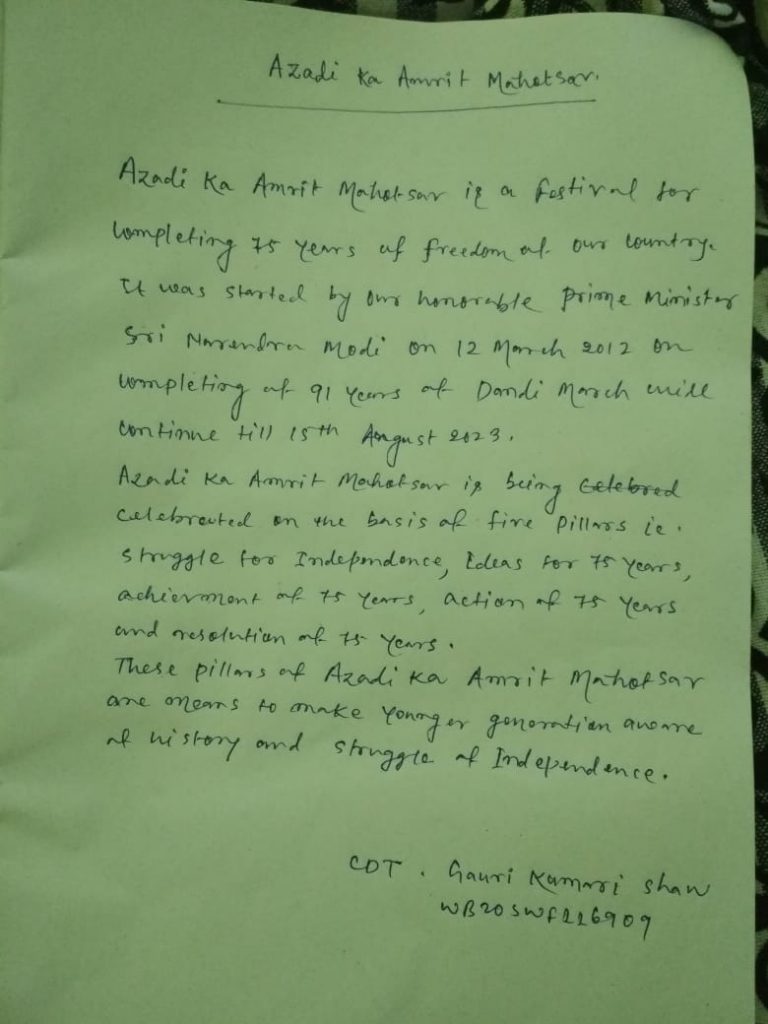 Azadi Ka Amrit Mahotsav.
Azadi Ka Amrit Mahotsav is a festival for
completing 75 years of freedom of our country.
It was started by our honorable Prime Minister
Sri Narendra Modi on 12 March 2012 on
completing of 91 years of Dandi March will
continue till 15th August 2023.
Azadi Ka Amrit Mahotsav is being celebred
celebrated on the basis of five pillars ie.
struggle for Independence, Ideas for 75 years,
achievment of 75 years, action of 75 years
and resolution of 75 years.
These pillars of Azadi Ka Amrit Mahotsav
are means to make younger generation aware
of history and struggle of Independence.
CDT. Gauri Kumari Shaw
WB20SWF226909